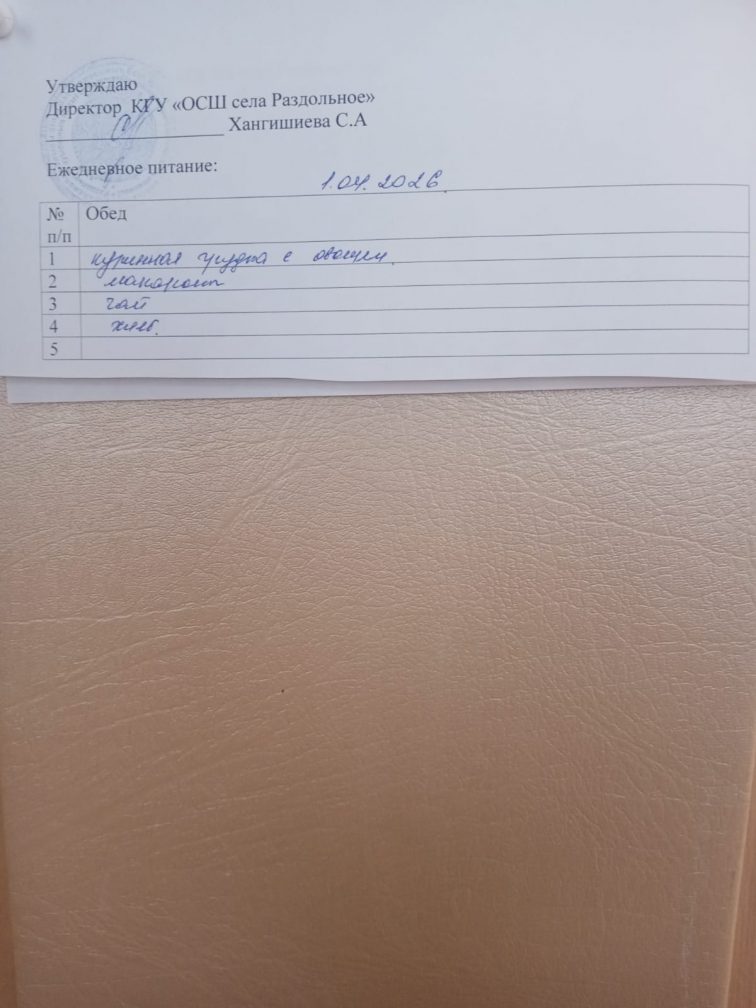 Утверждаю
Директор КГУ «ОСШ села Раздольное»
Хангишиева С.А
Ежедневное питание:
1.04.2026
№ п/п Обед
1 куринная грудка с овощем
2 макароны
3 чай
4 хлеб
5